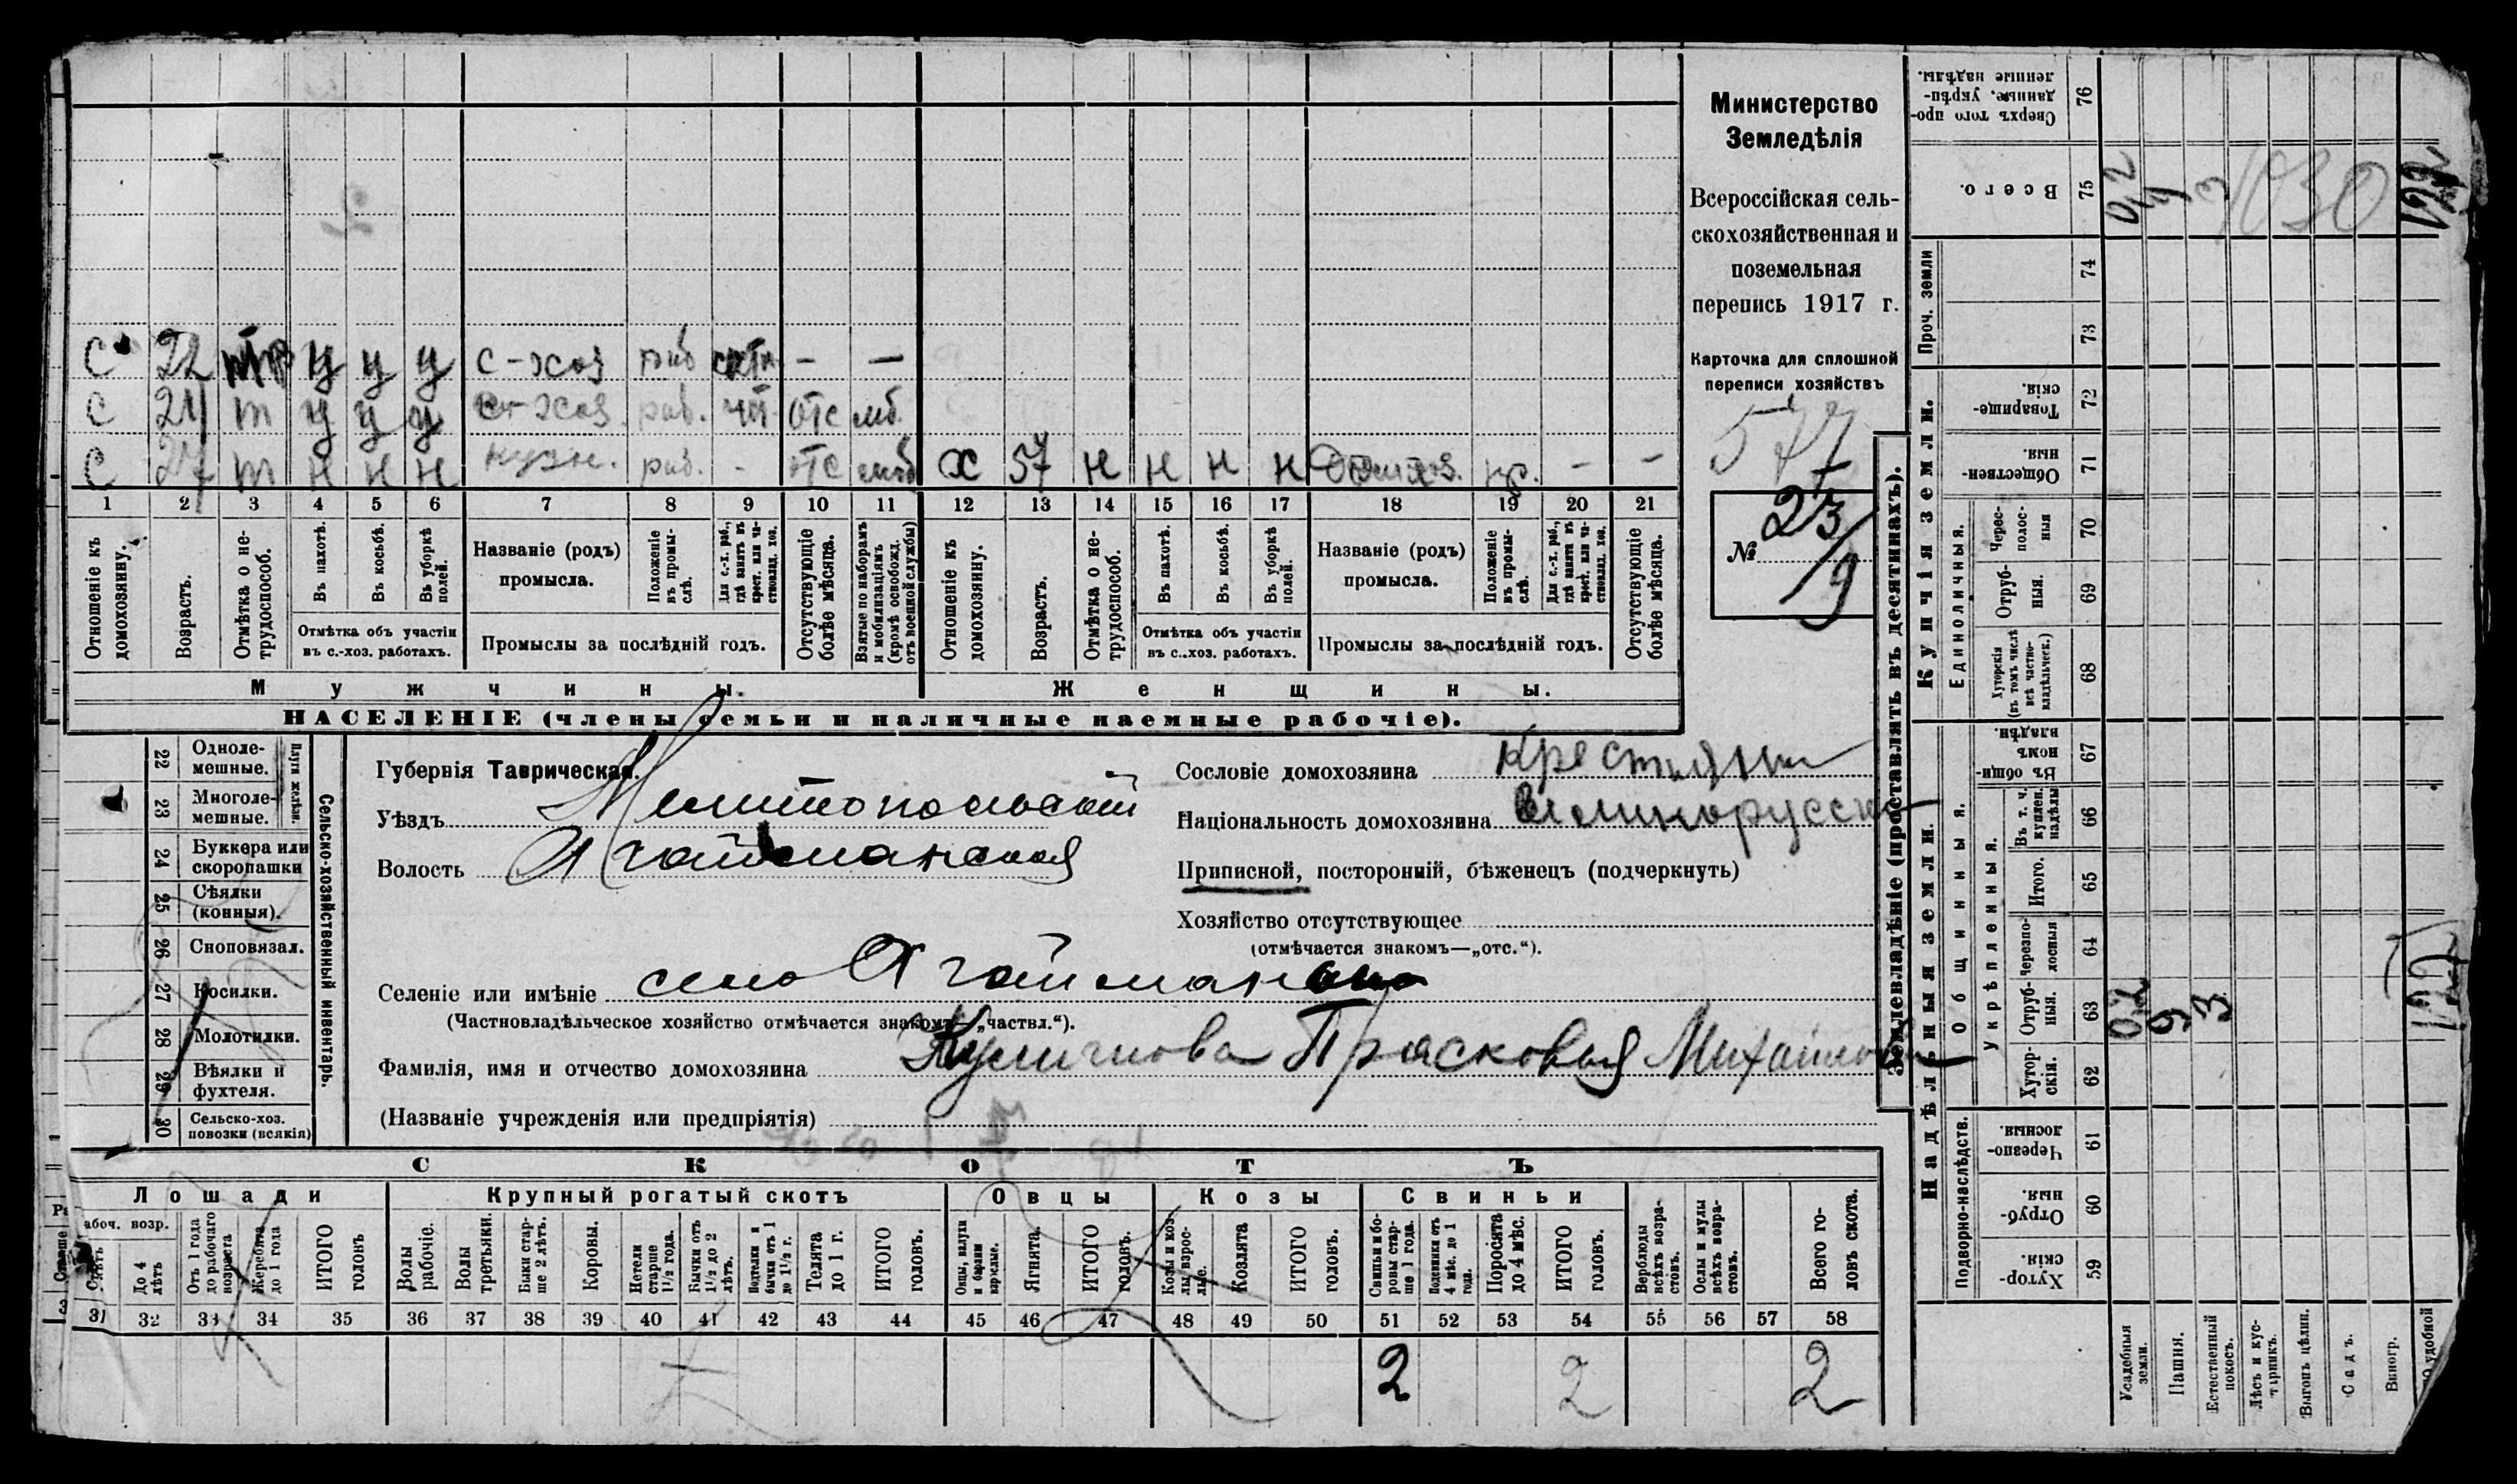 Министерство
Земледѣлія
Всероссійская сель-
скохозяйственная и
поземельная
перепись 1917 г.
Карточка для сплошной
переписи хозяйствъ
577
№ 23/9
С 22 у у у с-хоз раб - -
С 24 т у у у с-хоз. раб. отс мб.
С 27 т н н н кузн. раб. - отс моб х 57 н н н н Домхоз. пр. - -
1 2 3 4 5 6 7 8 9 10 11 12 13 14 15 16 17 18 19 20 21
Отношеніе къ домохозяину.
Возрастъ.
Отмѣтка о не-трудоспособ.
Въ пахотѣ.
Въ косьбѣ.
Въ уборкѣ полей.
Названіе (родъ) промысла.
Положеніе въ промы-слѣ.
Для с.-х. раб., гдѣ занятъ въ крест. или ча-стновлад. хоз.
Отсутствующіе болѣе мѣсяца.
Взятые по наборамъ и мобилизаціямъ (кромѣ освобожд. отъ военной службы)
Отношеніе къ домохозяину.
Возрастъ.
Отмѣтка о не-трудоспособ.
Въ пахотѣ.
Въ косьбѣ.
Въ уборкѣ полей.
Названіе (родъ) промысла.
Положеніе въ промы-слѣ.
Для с.-х. раб., гдѣ занята въ крест. или ча-стновлад. хоз.
Отсутствующіе болѣе мѣсяца.
Отмѣтка объ участіи въ с.-хоз. работахъ.
Промыслы за послѣдній годъ.
Отмѣтка объ участіи въ с.-хоз. работахъ.
Промыслы за послѣдній годъ.
Мужчины.
Женщины.
НАСЕЛЕНІЕ (члены семьи и наличные наемные рабочіе).
22 Одноле-мешные.
23 Многоле-мешные.
Плуги желѣзн.
24 Буккера или скоропашки
25 Сѣялки (конныя).
26 Сноповязал.
27 Косилки.
28 Молотилки.
29 Вѣялки и фухтеля.
30 Сельско-хоз. повозки (всякія)
Сельско-хозяйственный инвентарь.
Губернія Таврическая.
Уѣздъ Мелитопольскій
Волость Агайманская
Селеніе или имѣніе село Агайманы
(Частновладѣльческое хозяйство отмѣчается знакомъ—„частвл.“).
Фамилія, имя и отчество домохозяина Прасковья
(Названіе учрежденія или предпріятія)
Сословіе домохозяина крестьяни
Національность домохозяина великорусска
Приписной, посторонній, бѣженецъ (подчеркнуть)
Хозяйство отсутствующее
(отмѣчается знакомъ—„отс.“).
СКОТЪ
Лошади
Крупный рогатый скотъ
Овцы
Козы
Свиньи
абоч. возр.
До 4 лѣтъ
Отъ 1 года до рабочаго возраста
Жеребята до 1 года
ИТОГО головъ
Волы рабочіе.
Волы третьяки.
Быки стар-ше 2 лѣтъ.
Коровы.
Нетели старше 1½ года.
Бычки отъ 1½ до 2 лѣтъ.
Подтелки и бычки отъ 1 до 1½ г.
Телята до 1 г.
ИТОГО головъ.
Овцы, валухи и бараны взрослые.
Ягнята.
ИТОГО головъ.
Козы и коз-лы взрос-лые.
Козлята
ИТОГО головъ.
Свиньи и бо-ровы стар-ше 1 года.
Подсвинки отъ 4 мѣс. до 1 года.
Поросята до 4 мѣс.
ИТОГО головъ.
Верблюды всѣхъ возра-стовъ.
Ослы и мулы всѣхъ возра-стовъ.
Всего го-ловъ скота.
31 32 33 34 35 36 37 38 39 40 41 42 43 44 45 46 47 48 49 50 51 52 53 54 55 56 57 58
2 2 2
Землевладѣніе (проставлять въ десятинахъ).
Купчія земли.
Надѣльныя земли.
Сверхъ того про-данные, укрѣп-ленные надѣлы. 76
Всего. 75 0,2 9 3 1030
Проч. земли
74
73
Товарище-скія. 72
Обществен-ныя. 71
Единоличныя.
Черес-полос-ныя 70
Отруб-ныя. 69
Хуторскія (въ томъ числѣ всѣ частно-владѣльческ.) 68
Общинныя.
Въ общин-номъ владѣн. 67
Укрѣпленныя.
Въ т. ч. куплен. надѣлы 66
Итого. 65
Черезпо-лосныя 64
Отруб-ныя. 63 0,2 9 3
Хутор-скія. 62
Подворно-наслѣдств.
Черезпо-лосныя. 61
Отруб-ныя. 60
Хутор-скія. 59
Усадебныя земли.
Пашня.
Естественный покосъ.
Лѣсъ и кус-тарникъ.
Выгонъ цѣлин.
Садъ.
Виногр.
удобной